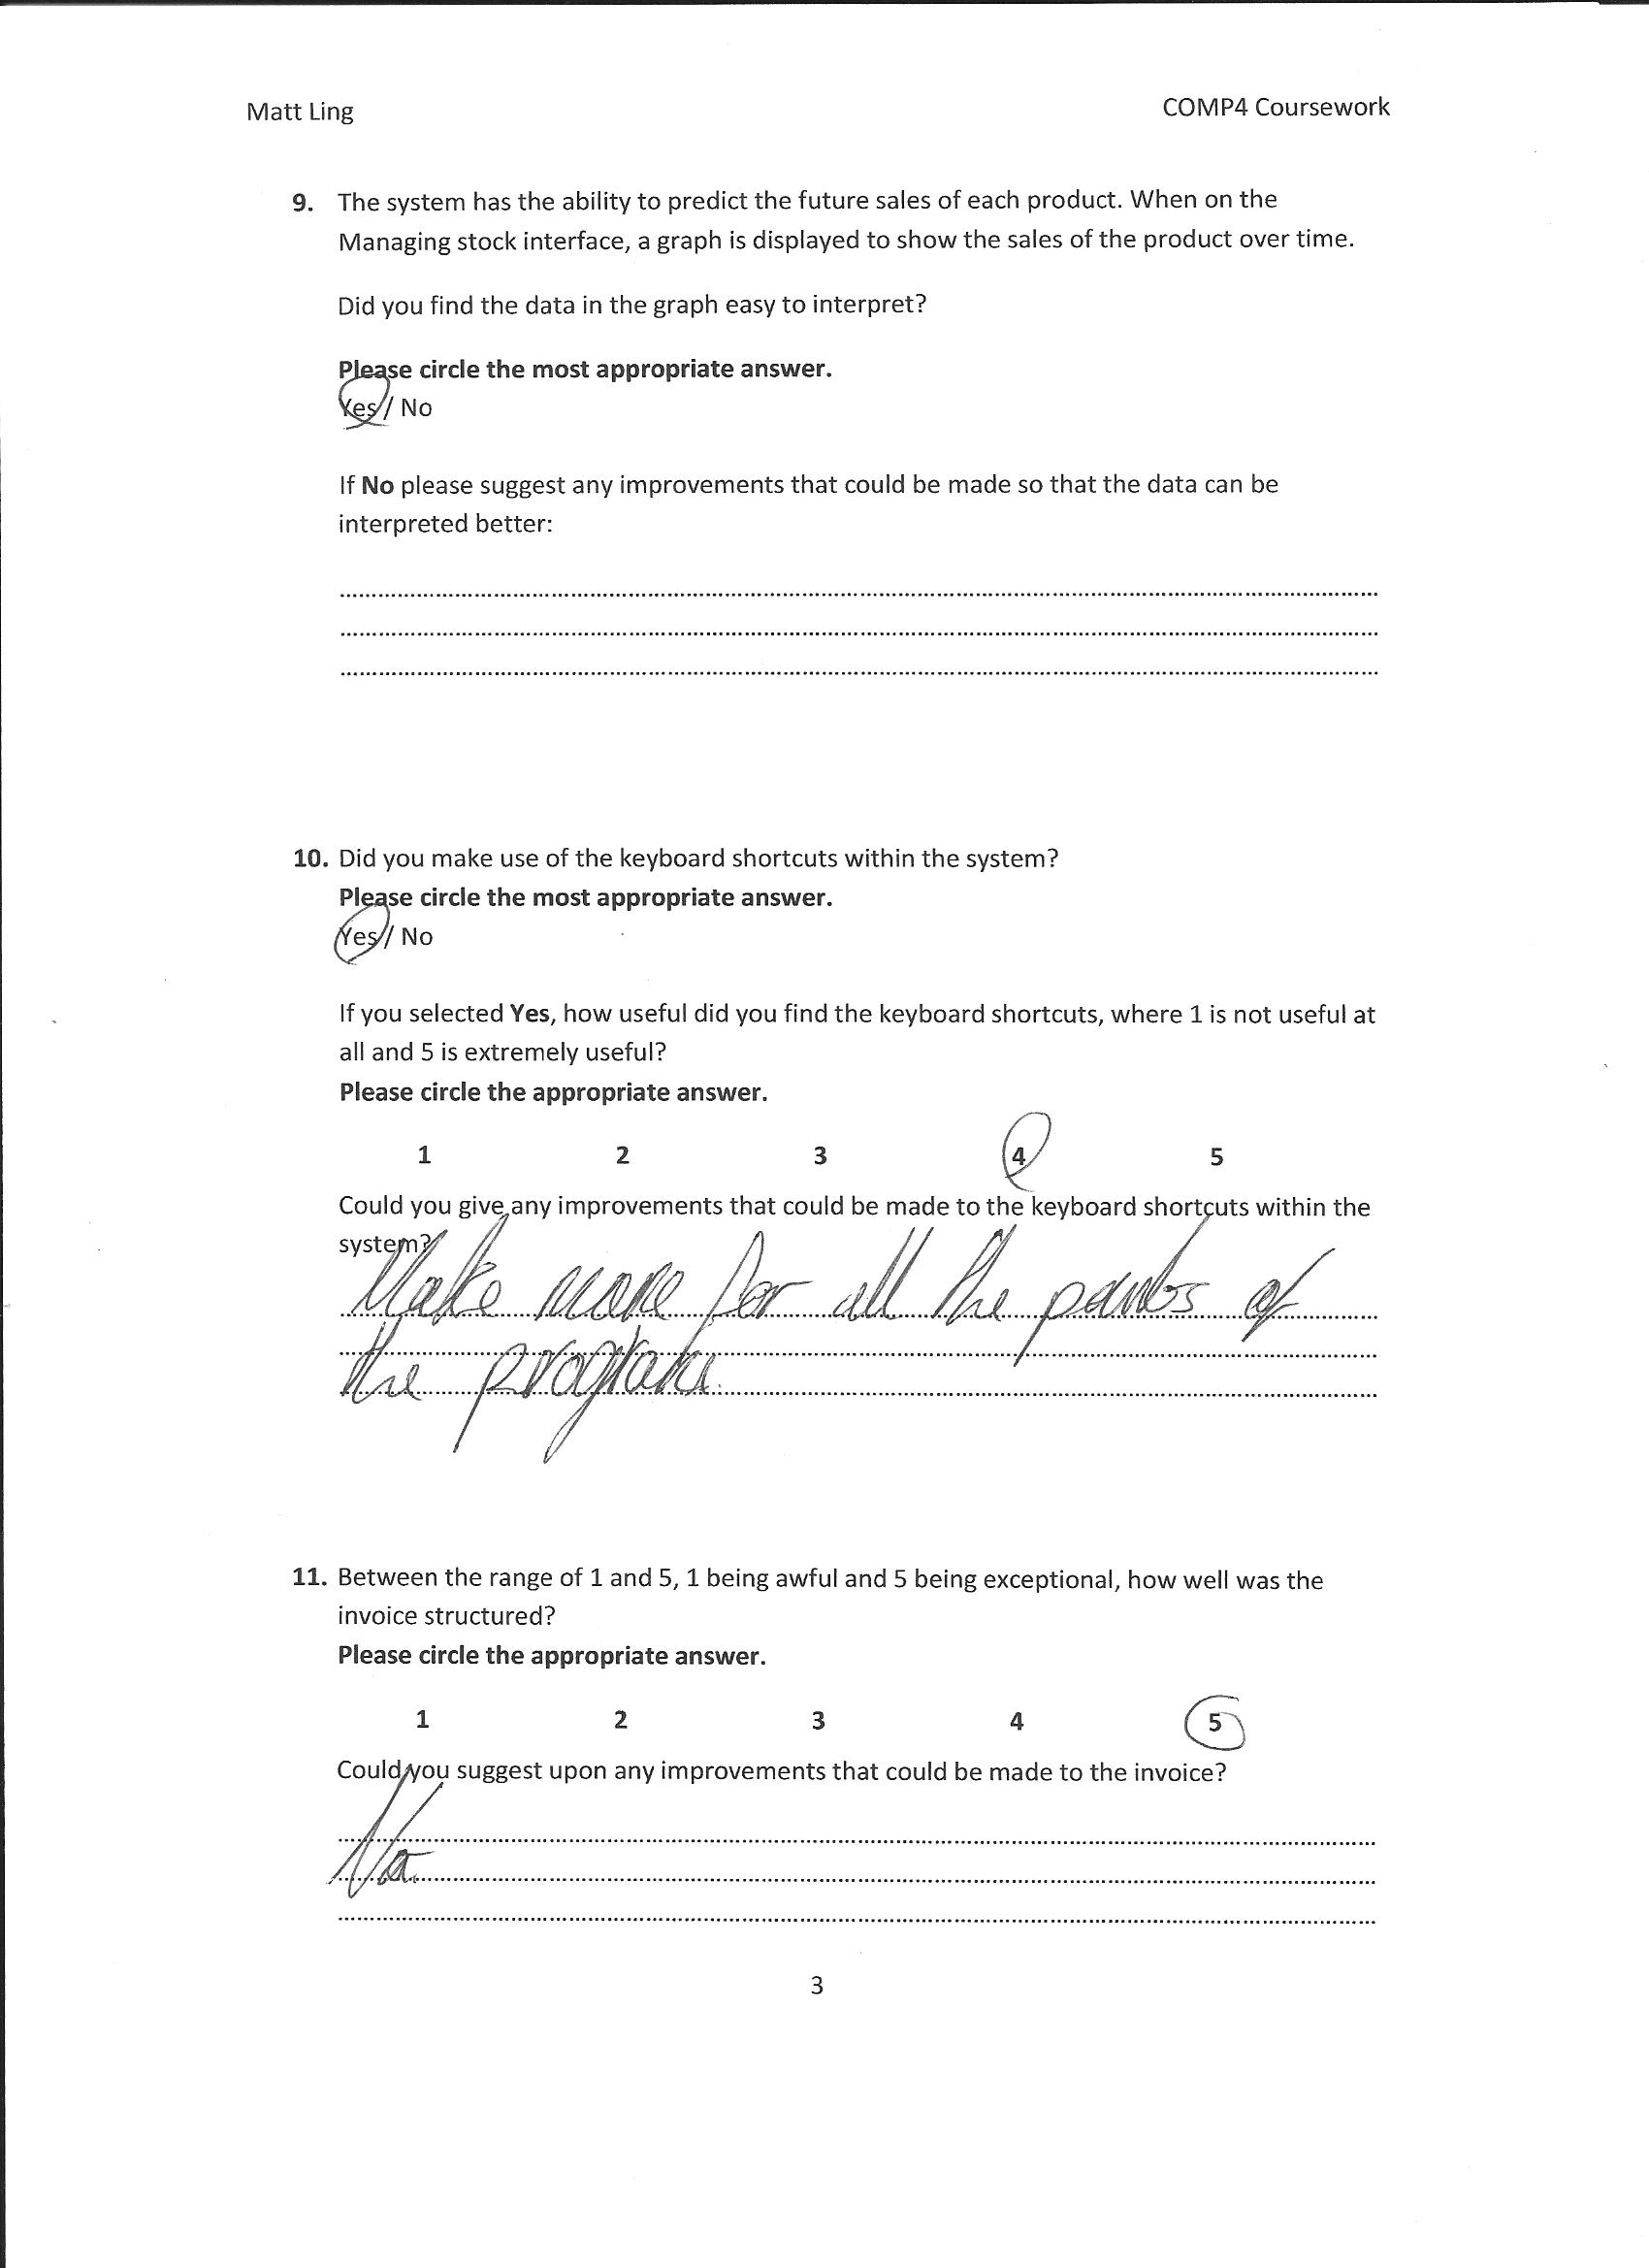 Matt Ling
COMP4 Coursework
9. The system has the ability to predict the future sales of each product. When on the
Managing stock interface, a graph is displayed to show the sales of the product over time.
Did you find the data in the graph easy to interpret?
Please circle the most appropriate answer.
Yes / No
If No please suggest any improvements that could be made so that the data can be
interpreted better:
10. Did you make use of the keyboard shortcuts within the system?
Please circle the most appropriate answer.
Yes / No
If you selected Yes, how useful did you find the keyboard shortcuts, where 1 is not useful at
all and 5 is extremely useful?
Please circle the appropriate answer.
1 2 3 4 5
Could you give any improvements that could be made to the keyboard shortcuts within the
system?
Make more for all the parts of
the program.
11. Between the range of 1 and 5, 1 being awful and 5 being exceptional, how well was the
invoice structured?
Please circle the appropriate answer.
1 2 3 4 5
Could you suggest upon any improvements that could be made to the invoice?
No.
3